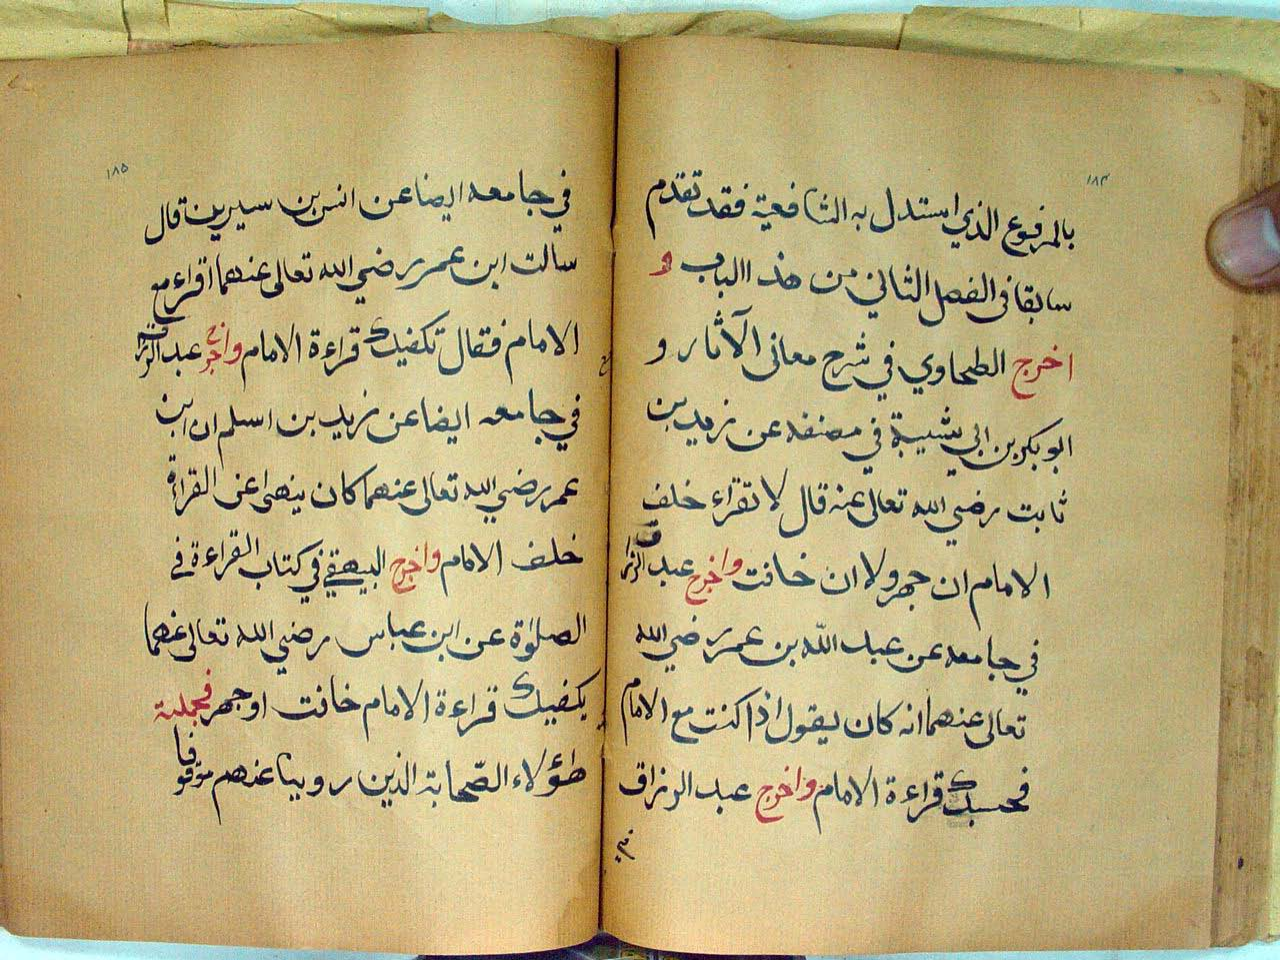 ١٨٤
بالمرفوع الذي استدل به الشافعية فقد تقدم
سابقا في الفصل الثاني من هذا الباب و
اخرج الطحاوي في شرح معاني الآثار و
ابو بكر بن ابي شيبة في مصنفه عن زيد بن
ثابت رضي الله تعالى عنه قال لا تقراء خلف
الامام ان جهر ولا ان خافت واخرج عبد الرزاق
في جامعه عن عبد الله بن عمر رضي الله
تعالى عنهما انه كان يقول اذا كنت مع الامام
فحسبك قراءة الامام واخرج عبد الرزاق
في
١٨٥
في جامعه ايضا عن انس بن سيرين قال
سالت ابن عمر رضي الله تعالى عنهما اقراء مع
الامام فقال تكفيك قراءة الامام واخرج عبد الرزاق
في جامعه ايضا عن زيد بن اسلم ان ابن
عمر رضي الله تعالى عنهما كان ينهى عن القراءة
خلف الامام واخرج البيهقي في كتاب القراءة في
الصلوة عن ابن عباس رضي الله تعالى عنهما
يكفيك قراءة الامام خافت او جهر فجملة
هؤلاء الصحابة الذين روينا عنهم موقوفا